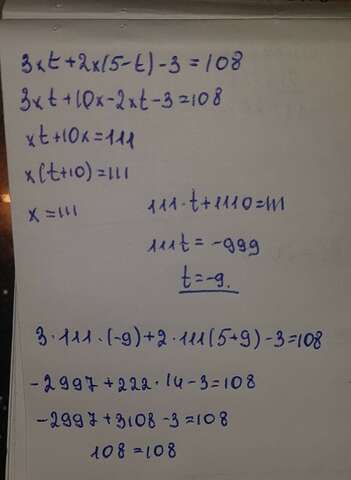 3xt+2x(5-t)-3=108
3xt+10x-2xt-3=108
xt+10x=111
x(t+10)=111
x=111
111·t+1110=111
111t=-999
t=-9.
3·111·(-9)+2·111(5+9)-3=108
-2997+222·14-3=108
-2997+3108-3=108
108=108